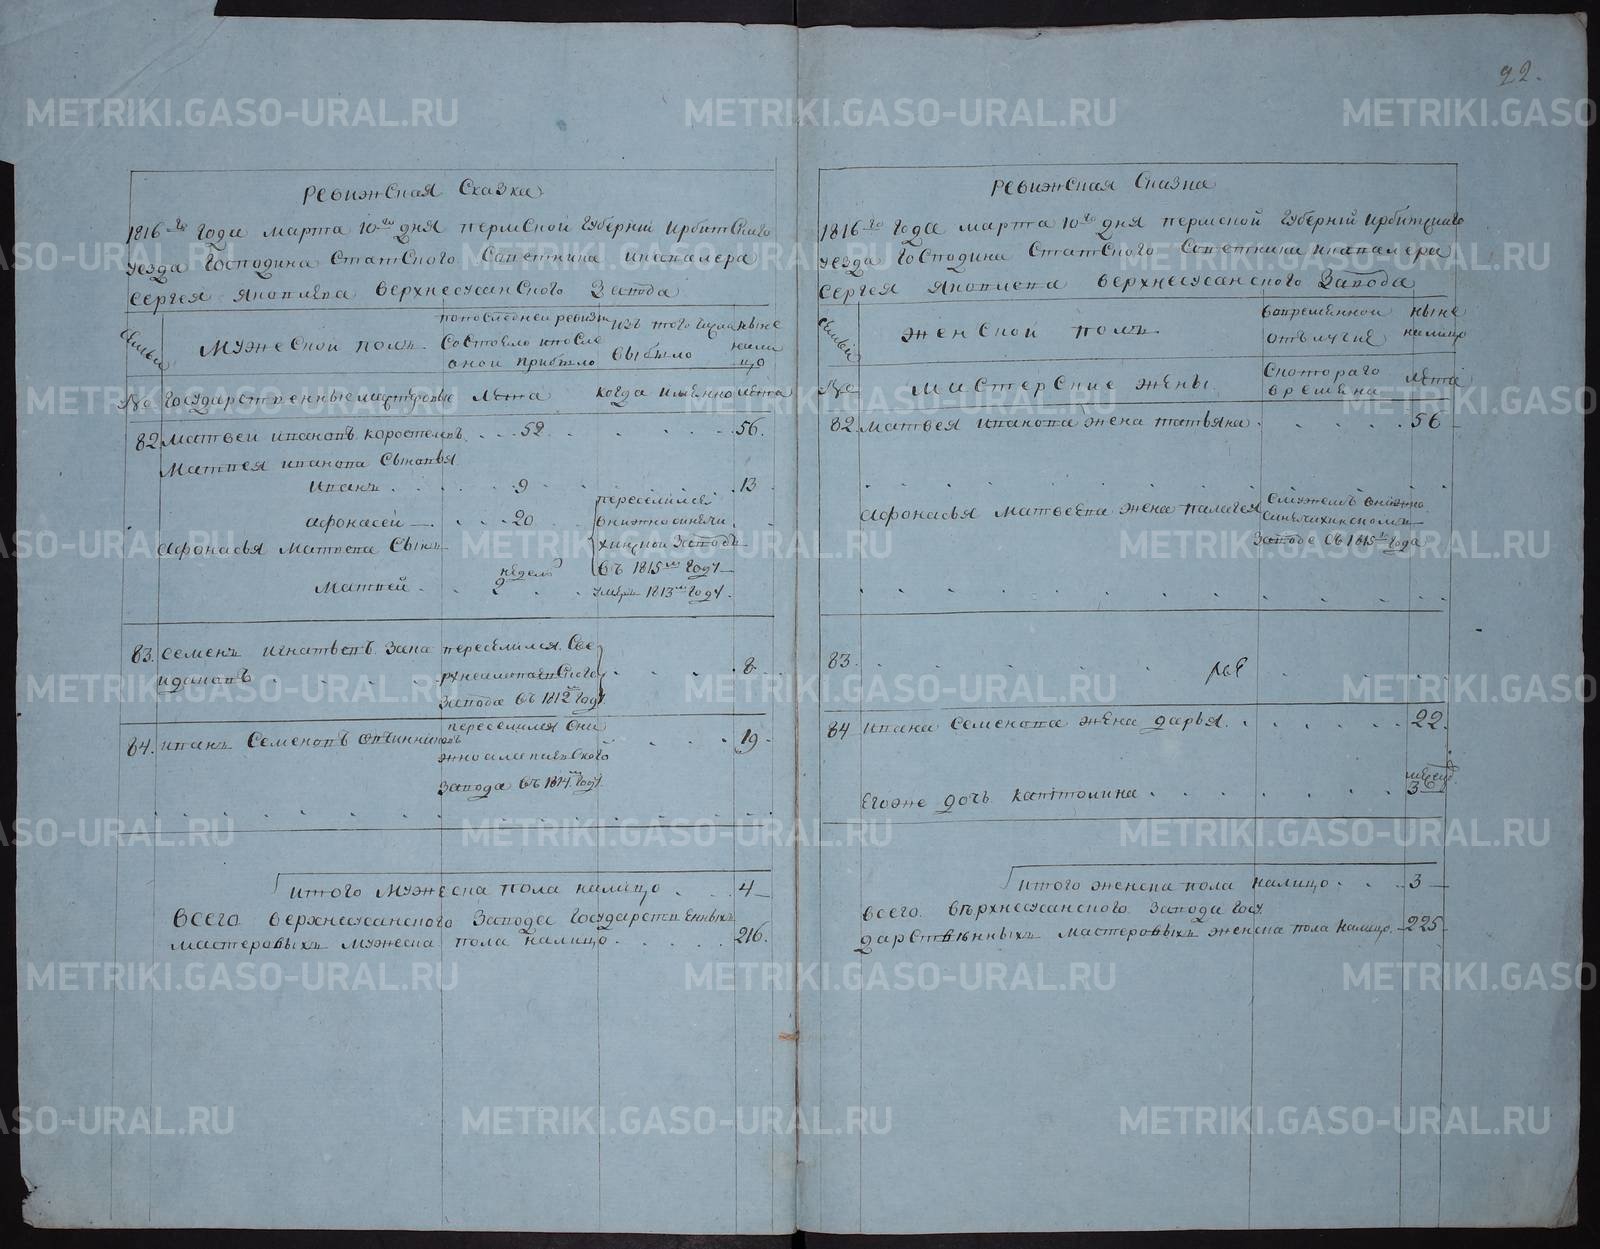 22.
Ревижская Сказка
1816го года марта 10го дня пермской губернiи ирбитскаго
уезда Господина Статского Советника и кавалера
Сергея Яковлева верхнесусанского Завода
Семьи
мужеской полъ
по последней ревизiи
состояло и после
оной прибыло
изъ того числа
выбыло
ныне
нали
цо
№
Государственные мастеровые
лета
когда имянно
лета
82. матвеи ивановъ коростелевъ 52 56.
Матвея иванова Сыновья
иванъ 9 13
афонасей 20
переселился
в нижносинячи
хинской Заводъ
въ 1815м году
афонасья матвева Сынъ
матвей
недель
2
умре 1813м году.
83. семенъ игнатьевъ
переселился Све
8
Завода въ 1812м году
84. иванъ Семеновъ овчинниковъ
переселился Сни
19
жноалапаевского
Завода въ 1814м году
итого мужеска пола налицо 4
всего верхнесусанского Завода Государственныхъ
мастеровыхъ мужеска пола налицо 216.
Ревижская Сказка
1816го года марта 10го дня пермской губернiи ирбитскаго
уезда Господина Статского Советника и кавалера
Сергея Яковлева верхнесусанского Завода
Семьи
женской полъ
вовременной
отлучке
ныне
налицо
№
мастерские жены
Скотораго
времена
лета
82. матвея иванова жена татьяна 56
афонасья матвеева жена палагея
смужемъ внижно
синячихинскомъ
Заводе съ 1815го года
83.
84 ивана Семенова жена дарья 22.
Егоже дочь капiтолина
3
итого женска пола налицо 3
всего верхнесусанского Завода Госу
дарственныхъ мастеровыхъ женска пола налицо 225
METRIKI.GASO-URAL.RU